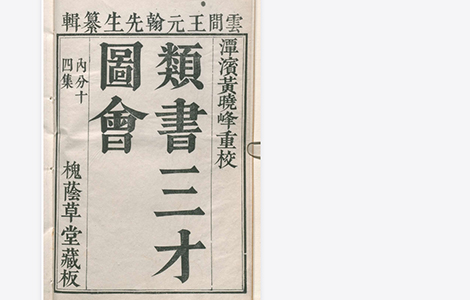 雲間王元翰先生纂輯
潭濱黃曉峰重校
類書三才
圖會
內分十
四集
槐蔭草堂藏板